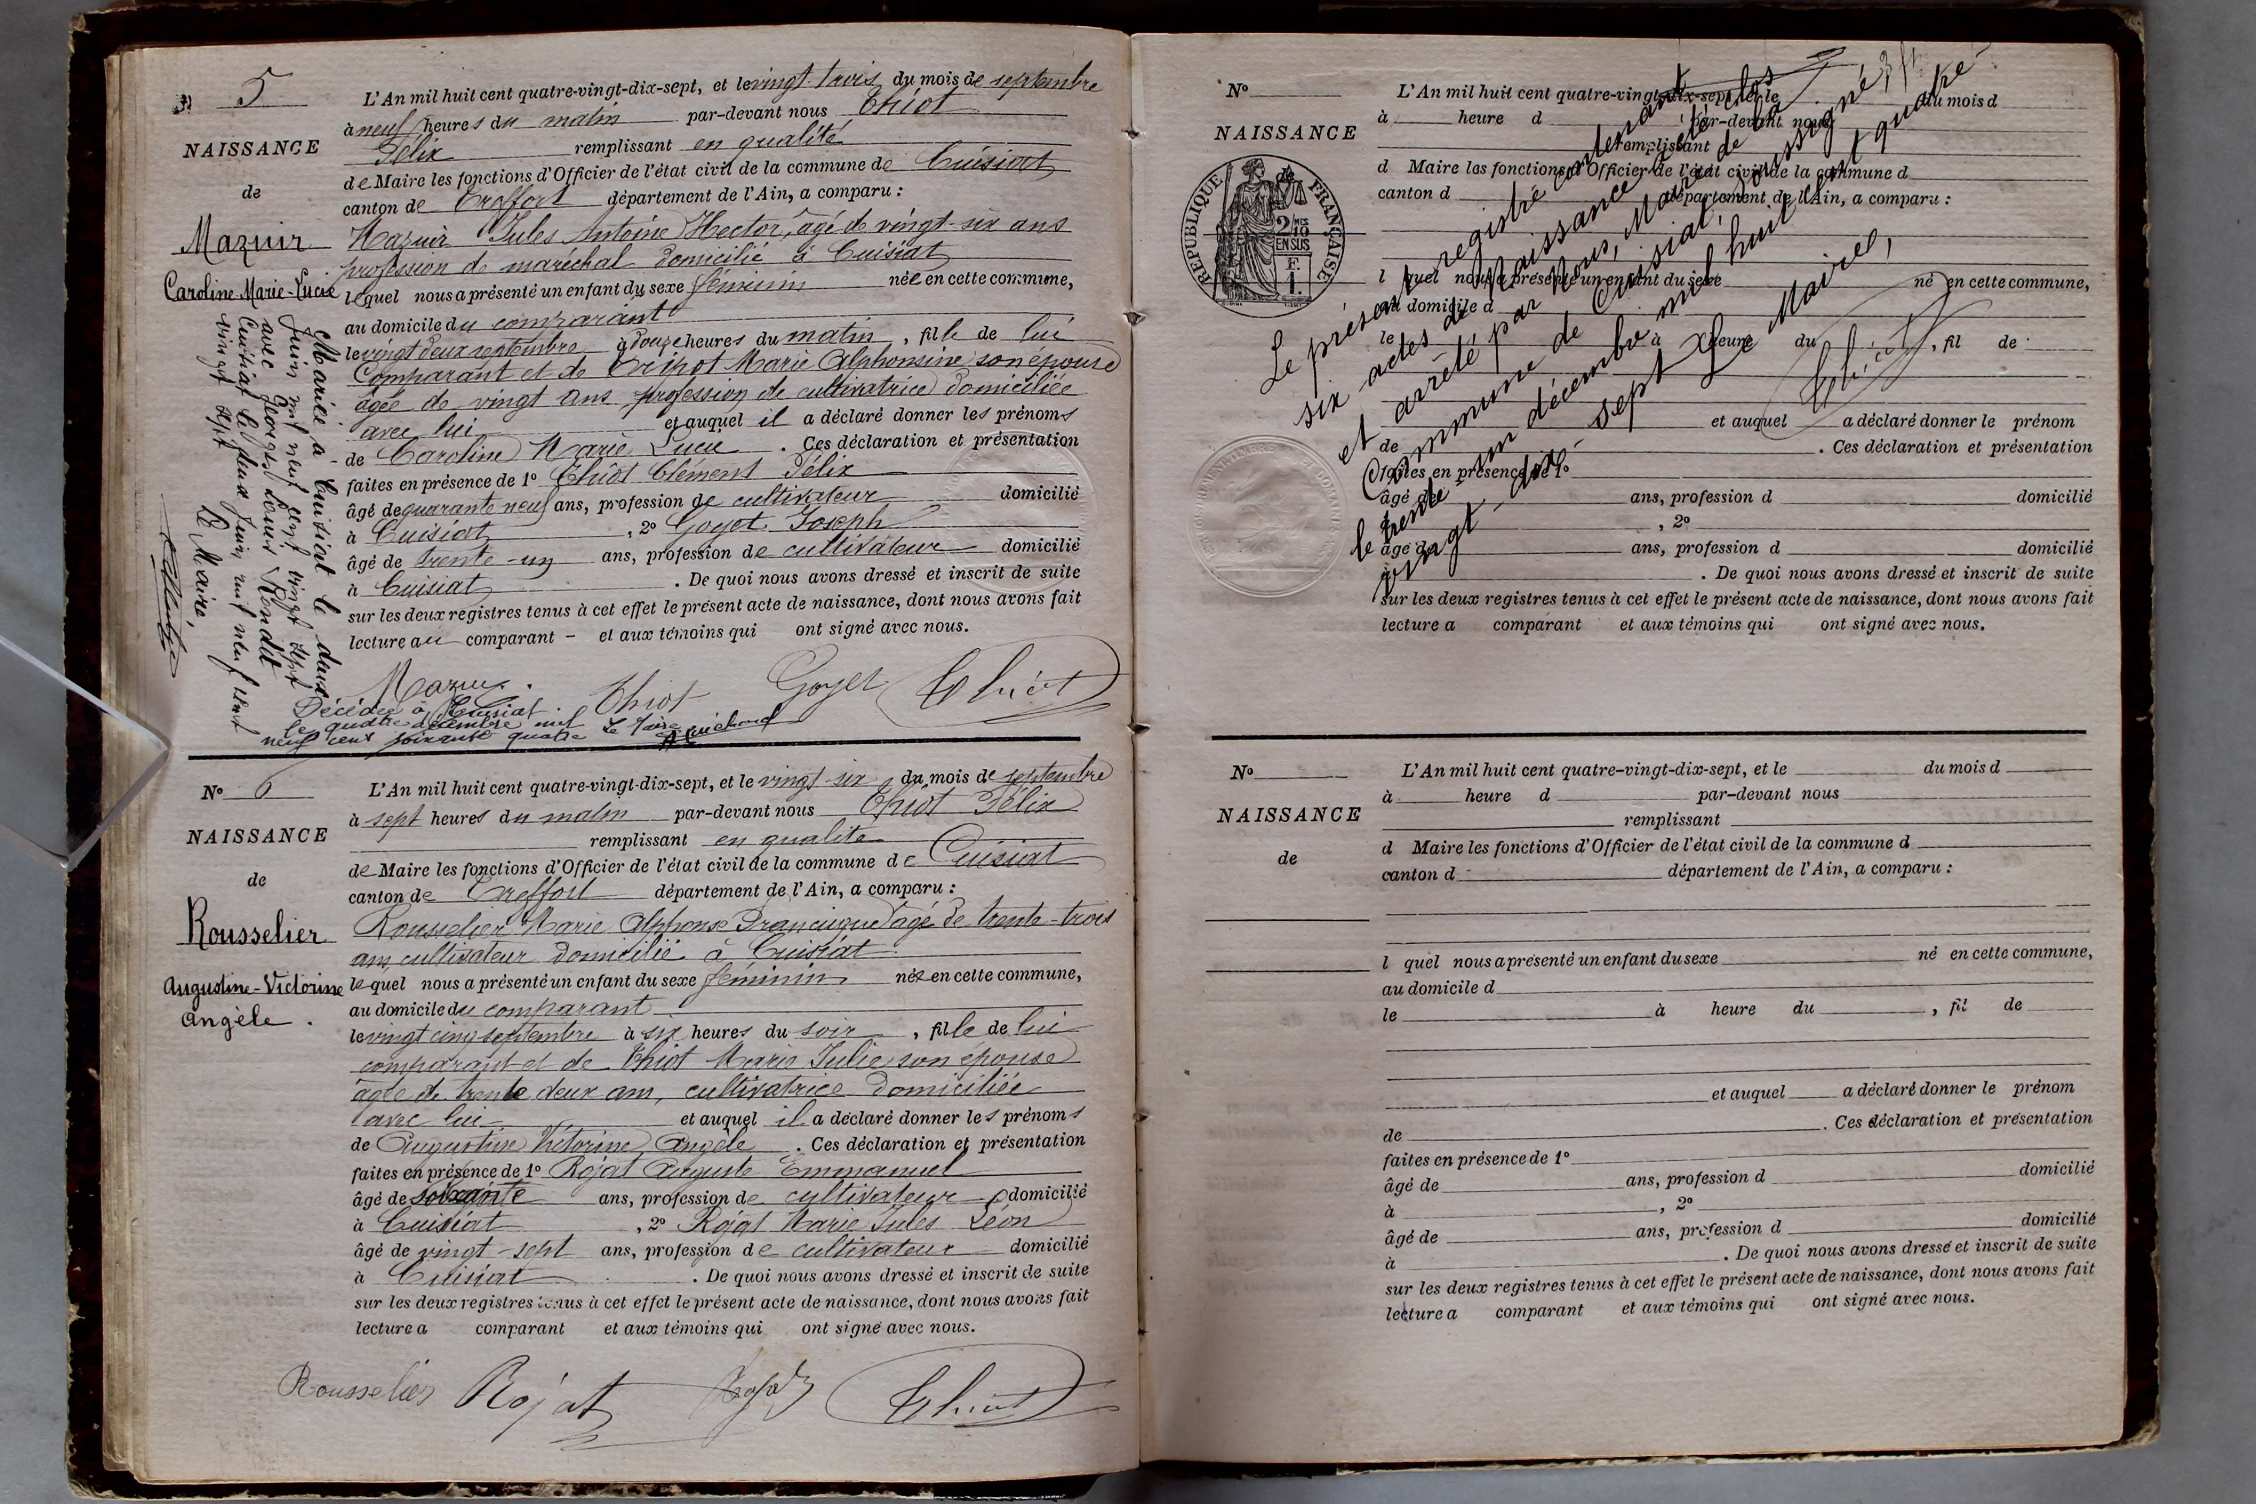 5
NAISSANCE
de
Mazuir
Caroline Marie-Lucie
L'An mil huit cent quatre-vingt-dix-sept, et le vingt-trois du mois de septembre
à neuf heures du matin par-devant nous Chiot
Félix remplissant en qualité
de Maire les fonctions d'Officier de l'état civil de la commune de Cuisiat
canton de Treffort département de l'Ain, a comparu :
Mazuir Jules Antoine Hector, âgé de vingt-six ans
profession de maréchal domicilié à Cuisiat
lequel nous a présenté un enfant du sexe féminin née en cette commune,
au domicile du comparant
le vingt deux septembre à douze heures du matin, fille de lui
Comparant et de Marie Alphonsine son épouse
âgée de vingt ans profession de cultivatrice domiciliée
avec lui et auquel il a déclaré donner les prénoms
de Caroline Marie Lucie. Ces déclaration et présentation
faites en présence de 1° Chiot Clément Félix
âgé de quarante neuf ans, profession de cultivateur domicilié
à Cuisiat, 2° Goyet Joseph
âgé de trente-un ans, profession de cultivateur domicilié
à Cuisiat. De quoi nous avons dressé et inscrit de suite
sur les deux registres tenus à cet effet le présent acte de naissance, dont nous avons fait
lecture au comparant - et aux témoins qui ont signé avec nous.
Mariée à Cuisiat le deux
Juin mil neuf cent vingt sept
avec Georges Louis Rondit
Cuisiat le deux Juin mil neuf cent
vingt sept
Le Maire,
Mazuir. Chiot Goyet Chiot
Décédée à Cuisiat
le quatre décembre mil
neuf cent soixante quatre Le Maire
N° 6
NAISSANCE
de
Rousselier
Augustine-Victorine
Angèle.
L'An mil huit cent quatre-vingt-dix-sept, et le vingt-six du mois de septembre
à sept heures du matin par-devant nous Chiot Félix
remplissant en qualité
de Maire les fonctions d'Officier de l'état civil de la commune de Cuisiat
canton de Treffort département de l'Ain, a comparu :
Rousselier Marie Alphonse Francisque âgé de trente-trois
ans, cultivateur domicilié à Cuisiat
lequel nous a présenté un enfant du sexe féminin née en cette commune,
au domicile du comparant
le vingt cinq septembre à six heures du soir, fille de lui
comparant et de Chiot Marie Julie son épouse
âgée de trente deux ans, cultivatrice domiciliée
avec lui et auquel il a déclaré donner les prénoms
de Augustine Victorine Angèle. Ces déclaration et présentation
faites en présence de 1° Rojat Auguste Emmanuel
âgé de soixante ans, profession de cultivateur domicilié
à Cuisiat, 2° Rojat Marie Jules Léon
âgé de vingt-sept ans, profession de cultivateur domicilié
à Cuisiat. De quoi nous avons dressé et inscrit de suite
sur les deux registres tenus à cet effet le présent acte de naissance, dont nous avons fait
lecture a comparant et aux témoins qui ont signé avec nous.
Rousselier Rojat Rojat Chiot
N°
NAISSANCE
RÉPUBLIQUE FRANÇAISE
2/10 MES
EN SUS
F.
1.
L'An mil huit cent quatre-vingt-dix-sept, et le du mois d
à heure d par-devant nous
remplissant
d Maire les fonctions d'Officier de l'état civil de la commune d
canton d département de l'Ain, a comparu :
l quel nous a présenté un enfant du sexe né en cette commune,
au domicile d
le à heure du , fil de
et auquel a déclaré donner le prénom
de . Ces déclaration et présentation
faites en présence de 1°
âgé de ans, profession d domicilié
, 2°
âgé de ans, profession d domicilié
à . De quoi nous avons dressé et inscrit de suite
sur les deux registres tenus à cet effet le présent acte de naissance, dont nous avons fait
lecture a comparant et aux témoins qui ont signé avec nous.
Le présent registre contenant
six actes de naissance a été clos
et arrêté par Nous, Maire de la
Commune de Cuisiat, soussigné,
le trente un décembre mil huit cent quatre-
vingt-dix-sept
Le Maire,
Chiot
N°
NAISSANCE
de
L'An mil huit cent quatre-vingt-dix-sept, et le du mois d
à heure d par-devant nous
remplissant
d Maire les fonctions d'Officier de l'état civil de la commune d
canton d département de l'Ain, a comparu :
l quel nous a présenté un enfant du sexe né en cette commune,
au domicile d
le à heure du , fil de
et auquel a déclaré donner le prénom
de . Ces déclaration et présentation
faites en présence de 1°
âgé de ans, profession d domicilié
à , 2°
âgé de ans, profession d domicilié
à . De quoi nous avons dressé et inscrit de suite
sur les deux registres tenus à cet effet le présent acte de naissance, dont nous avons fait
lecture a comparant et aux témoins qui ont signé avec nous.